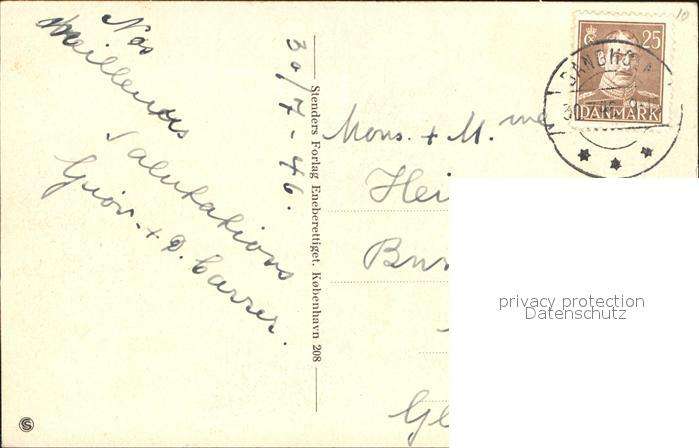 Nos
Meilleures
Salutations
Giov. + D. Carrer.
30/7-46.
Stenders Forlag Eneberettiget. København 208
Mons. + M. me
Hei
Bur
Gl
25
DANMARK
30
privacy protection
Datenschutz
10